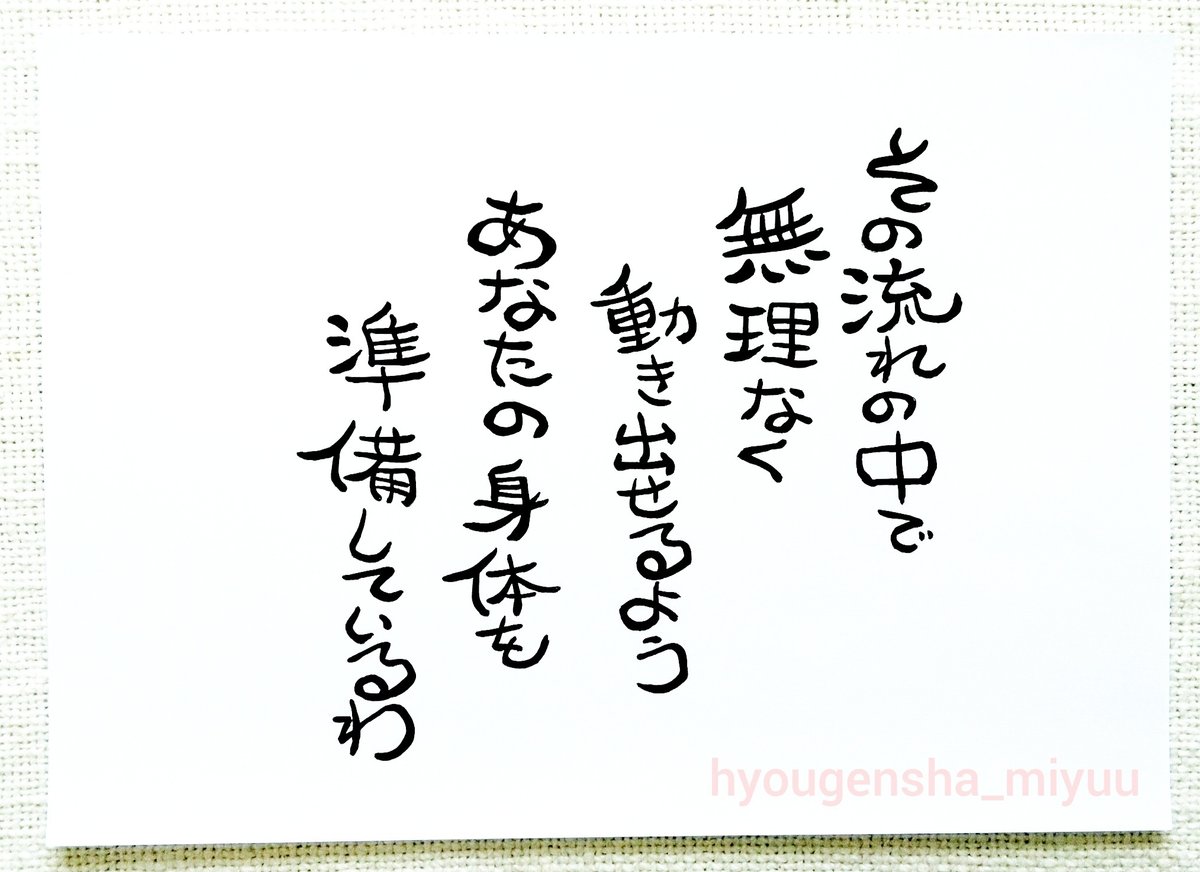 その流れの中で
無理なく
動き出せるよう
あなたの身体を
準備しているわ
hyougensha_miyuu